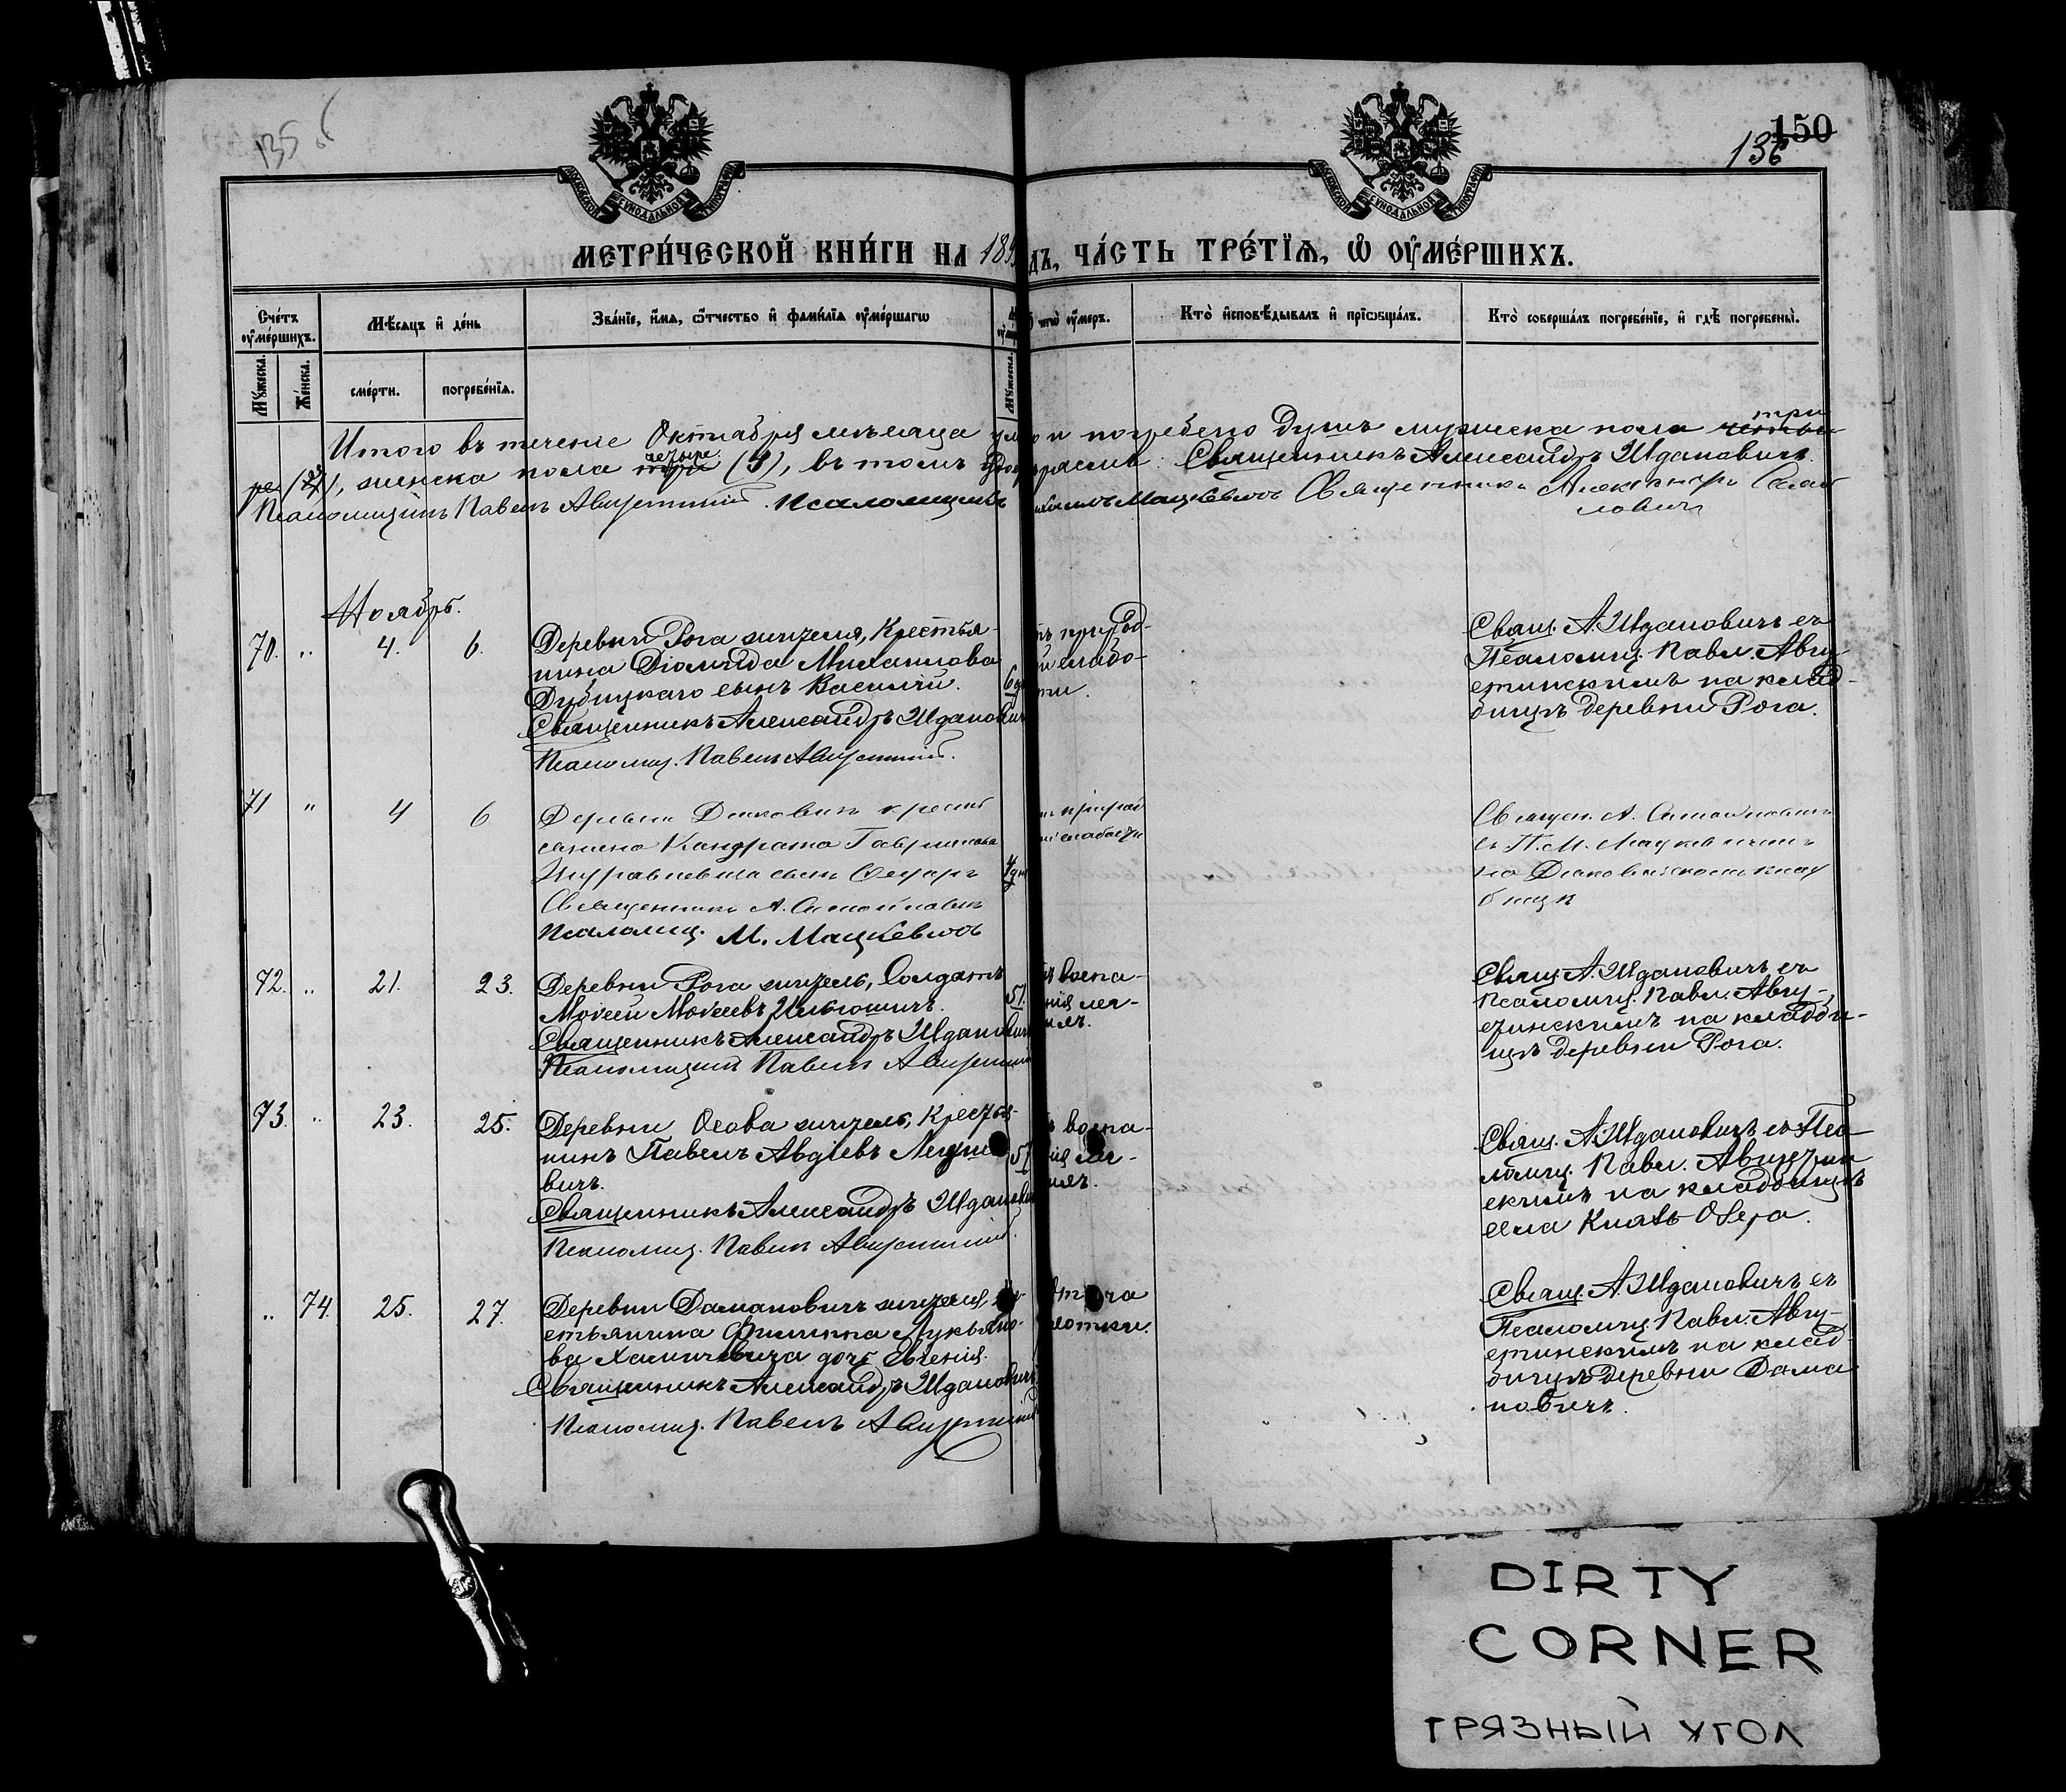 135 об
150
136
МОСКОВСКОЙ СѴНОДАЛЬНОЙ ТИПОГРАФІИ
МОСКОВСКОЙ СѴНОДАЛЬНОЙ ТИПОГРАФІИ
МЕТРИ́ЧЕСКОЙ КНИ́ГИ НА 189 ДЪ, ЧА́СТЬ ТРЕ́ТІѦ, Ѡ҆ ОУ҆МЕ́РШИХЪ.
Сче́тъ оу҆ме́ршихъ.
Мѣ́сяцъ и҆ де́нь
Зва́нїе, и҆́мя, ѻ҆́тчество и҆ фами́лїя оу҆ме́ршагѡ
чегѡ̀ оу҆́меръ.
Кто̀ и҆сповѣ́дывалъ и҆ прїѡбща́лъ.
Кто̀ соверша́лъ погребе́нїе, и҆ гдѣ̀ погребены̀.
Мꙋ́жеска.
Же́нска.
сме́рти.
погребе́нїя.
Мꙋ́жеска.
Итого въ теченіе Октября мѣсяца и погребено душъ мужеска пола три
ре (3), женска пола четыре (4), въ томъ Священникъ Александръ Ждановичъ.
Псаломщикъ Павелъ Августинскій. Псаломщикъ Мацкевичъ Священникъ Александръ
Ноябрь.
70. „ 4. 6. Деревни Рога жителя, Крестья-
нина Діомида Михаилова
Дубицкаго сынъ Василій. 6
Священникъ Александръ Ждановичъ
Псаломщ. Павелъ Августинскій.
природ-
й слабо-
сти.
Свящ. А. Ждановичъ съ
Псаломщ. Павл. Авгу-
стинскимъ на клад-
бищѣ деревни Рога.
71 „ 4 6 Деревни Дяковичъ крест
янина Кондрата Гаврилова
сынъ Федоръ 4 дн
Священникъ А.
Псаломщ. М. Мацкевичъ
природ
слабости
Священ. А.
съ П. М. Мацкевичемъ
на Дяковичскомъ клад
бищѣ
72. „ 21. 23. Деревни Рога житель, Солдатъ
Моѵсей Моѵсеевъ Ильюшичъ. 51.
Священникъ Александръ Ждановичъ
Псаломщикъ Павелъ Августинскій
воспа-
нія лег-
ихъ.
Свящ. А. Ждановичъ съ
псаломщ. Павл. Авгу-
стинскимъ на кладби-
щѣ деревни Рога.
73. „ 23. 25. Деревни Осова житель, Крестья-
нинъ Павелъ Авдіевъ
вичъ. 57
Священникъ Александръ Ждановичъ
Псаломщ. Павелъ Августинскій.
воспа-
нія лег-
ихъ.
Свящ. А. Ждановичъ съ Пса
ломщ. Павл. Августин
скимъ на кладбищѣ
села Князь Озера.
„ 74. 25. 27. Деревни Домановичъ жителя, кре
стьянина Филиппа Лукьяно-
ва Хамичевича дочь Евгенія.
Священникъ Александръ Ждановичъ.
Псаломщ. Павелъ Августинскій
Свящ. А. Ждановичъ съ
Псаломщ. Павл. Авгу-
стинскимъ на клад-
бищѣ деревни Дама
новичъ.
DIRTY
CORNER
ГРЯЗНЫЙ УГОЛ